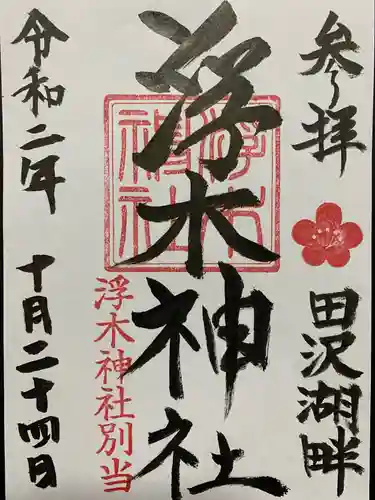 参拝
田沢湖畔
浮木神社
浮木神社別当
令和二年 十月二十四日